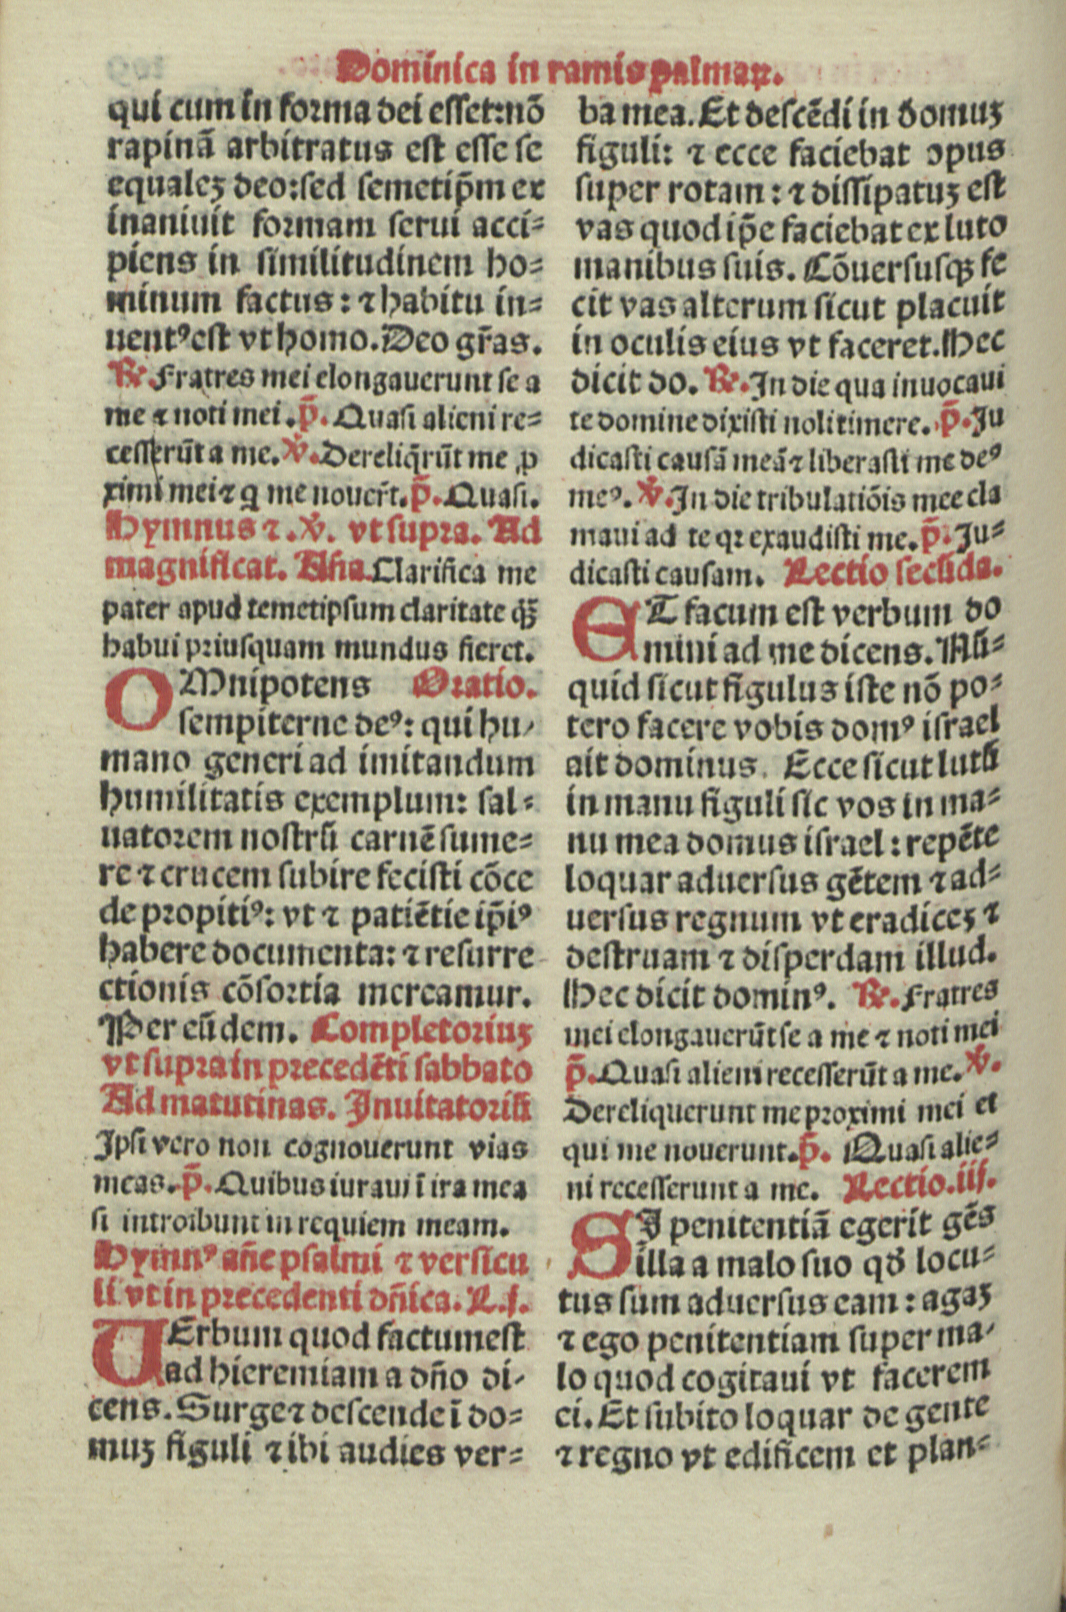 Dominica in ramis palmaꝝ.
qui cum in forma dei esset:nō
rapinā arbitratus est esse se
equaleʒ deo:sed semetip̄m ex
inaniuit formam serui acci⸗
piens in similitudinem ho⸗
minum factus: ⁊ habitu in⸗
uentꝰ est vt homo. Deo gr̄as.
℟. Fratres mei elongauerunt se a
me ⁊ noti mei. p̄. Quasi alieni re⸗
cesserūt a me. ℣. Dereliq̄rūt me ꝓ
ximi mei ⁊ q me nouer̄t. p̄. Quasi.
Hymnus ⁊. ℣. vt supra. Ad
magnificat. Aña. Clarifica me
pater apud temetipsum claritate qᷓꝫ
habui priusquam mundus fieret.
OMnipotens Oratio.
sempiterne deꝰ: qui hu⸗
mano generi ad imitandum
humilitatis exemplum: sal⸗
uatorem nostrū carnē sume⸗
re ⁊ crucem subire fecisti cōce
de propitiꝰ: vt ⁊ patiētie ip̄iꝰ
habere documenta: ⁊ resurre
ctionis cōsortia mereamur.
Per eūdem. Completoriuʒ
vt supra in precedēti sabbato
Ad matutinas. Inuitatoriū
Ipsi vero non cognouerunt vias
meas. p̄. Quibus iuraui ī ira mea
si introibunt in requiem meam.
Hymnꝰ añe psalmi ⁊ versicu
li vt in precedenti dñica. L. j.
UErbum quod factum est
ad hieremiam a dño di⸗
cens. Surge ⁊ descende ī do⸗
muʒ figuli ⁊ ibi audies ver⸗
ba mea. Et descēdi in domuʒ
figuli: ⁊ ecce faciebat opus
super rotam: ⁊ dissipatuʒ est
vas quod ip̄e faciebat ex luto
manibus suis. Cōuersusqꝫ fe
cit vas alterum sicut placuit
in oculis eius vt faceret. Hec
dicit do. ℟. In die qua inuocaui
te domine dixisti noli timere. p̄. Ju
dicasti causā meā ⁊ liberasti me deꝰ
meꝰ. ℣. In die tribulatiōis mee cla
maui ad te qꝛ exaudisti me. p̄. Ju⸗
dicasti causam. Lectio secūda.
ET facum est verbum do
mini ad me dicens. Nū⸗
quid sicut figulus iste nō po⸗
tero facere vobis domꝰ israel
ait dominus. Ecce sicut lutū
in manu figuli sic vos in ma⸗
nu mea domus israel: repēte
loquar aduersus gētem ⁊ ad⸗
uersus regnum vt eradiceʒ ⁊
destruam ⁊ disperdam illud.
Hec dicit dominꝰ. ℟. Fratres
mei elongauerūt se a me ⁊ noti mei
p̄. Quasi alieni recesserūt a me. ℣.
Dereliquerunt me proximi mei et
qui me nouerunt. p̄. Quasi alie⸗
ni recesserunt a me. Lectio. iij.
SI penitentiā egerit gēs
illa a malo suo qđ locu⸗
tus sum aduersus eam: agaʒ
⁊ ego penitentiam super ma⸗
lo quod cogitaui vt facerem
ei. Et subito loquar de gente
⁊ regno vt edificem et plan⸗